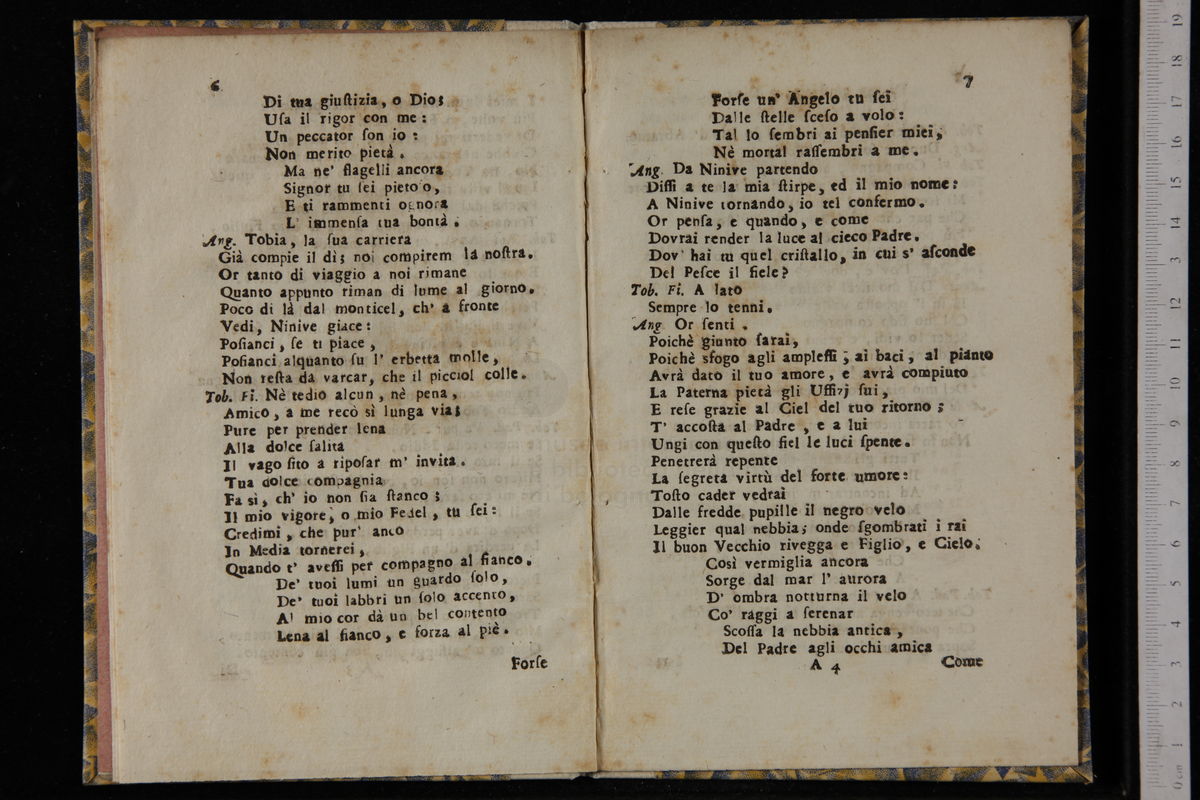 6
Di tua giuſtizia, o Dio;
Uſa il rigor con me:
Un peccator ſon io:
Non merito pietà.
Ma ne' flagelli ancora
Signor tu ſei pieto o,
E ti rammenti ognora
L' immenſa tua bontà.
Ang. Tobia, la ſua carriera
Già compie il dì; noi compirem la noſtra.
Or tanto di viaggio a noi rimane
Quanto appunto riman di lume al giorno.
Poco di là dal monticel, ch' a fronte
Vedi, Ninive giace:
Poſianci, ſe ti piace,
Poſianci alquanto ſu l' erbetta molle,
Non reſta da varcar, che il picciol colle.
Tob. Fi. Nè tedio alcun, nè pena,
Amico, a me recò sì lunga via;
Pure per prender lena
Alla dolce ſalita
Il vago ſito a ripoſar m' invita.
Tua dolce compagnia
Fa sì, ch' io non ſia ſtanco;
Il mio vigore, o mio Fedel, tu ſei:
Credimi, che pur' anco
In Media tornerei,
Quando t' aveſſi per compagno al fianco.
De' tuoi lumi un guardo ſolo,
De' tuoi labbri un ſolo accento,
Al mio cor dà un bel contento
Lena al fianco, e forza al piè.
Forſe
7
Forſe un' Angelo tu ſei
Dalle ſtelle ſceſo a volo:
Tal lo ſembri ai penſier miei,
Nè mortal raſſembri a me.
Ang. Da Ninive partendo
Diſſi a te la mia ſtirpe, ed il mio nome:
A Ninive tornando, io tel confermo.
Or penſa, e quando, e come
Dovrai render la luce al cieco Padre.
Dov' hai tu quel criſtallo, in cui s' aſconde
Del Peſce il fiele?
Tob. Fi. A lato
Sempre lo tenni.
Ang. Or ſenti.
Poichè giunto ſarai,
Poichè sfogo agli ampleſſi, ai baci, al pianto
Avrà dato il tuo amore, e avrà compiuto
La Paterna pietà gli Uffizj ſui,
E reſe grazie al Ciel del tuo ritorno;
T' accoſta al Padre, e a lui
Ungi con queſto fiel le luci ſpente.
Penetrerà repente
La ſegreta virtù del forte umore:
Toſto cader vedrai
Dalle fredde pupille il negro velo
Leggier qual nebbia; onde ſgombrati i rai
Il buon Vecchio rivegga e Figlio, e Cielo.
Così vermiglia ancora
Sorge dal mar l' aurora
D' ombra notturna il velo
Co' raggi a ſerenar
Scoſſa la nebbia antica,
Del Padre agli occhi amica
A 4
Come